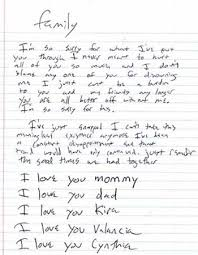 family
I'm so sorry for what I've put
you through I never meant to hurt
all of you so much and I don't
blame any one of you for disowning
me I just cant be a burden
to you and my friends any longer
You are all better off without me.
I'm so sorry for this.
I've just snapped I can't take this
meaningless existence anymore I've been
a constant disappointment and that
trend would have only continued. just remember
the good times we had together
I love you mommy
I love you dad
I love you Kira
I love you Valancia
I love you Cynthia